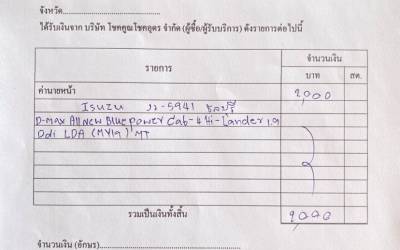 จังหวัด
ได้รับเงินจาก บริษัท โชคคูณโชคอุดร จำกัด (ผู้ซื้อ/ผู้รับบริการ) ดังรายการต่อไปนี้
รายการ จำนวนเงิน
บาท สต.
ค่านายหน้า 2,000
ISUZU ขว-5941 ชลบุรี
D-MAX All NEW BLUE POWER Cab-4 Hi-Lander 1.9
Ddi LDA (MY19) MT
รวมเป็นเงินทั้งสิ้น 2,000
จำนวนเงิน (อักษร)